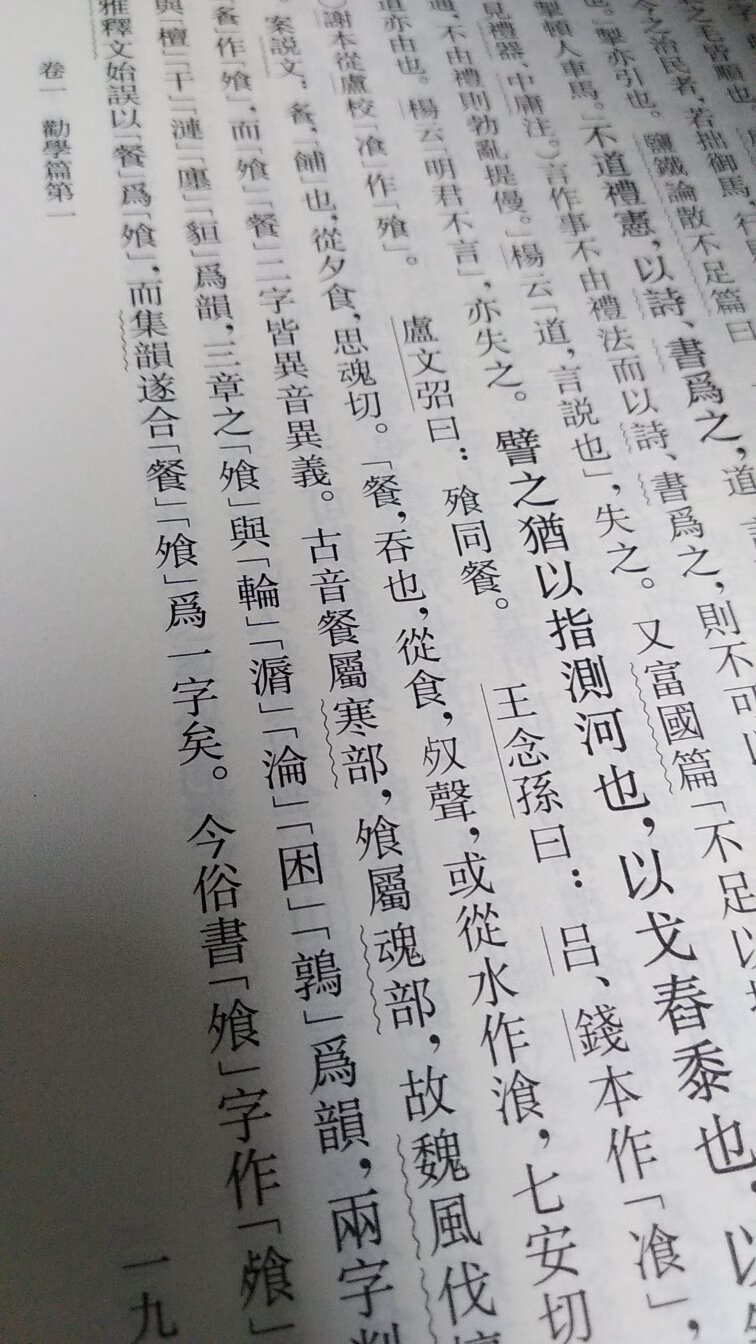 之毛皆順也
今之治民者，若拙御馬，行
也。」掣亦引也。鹽鐵論散不足篇曰
掣頓人車馬。」不道禮憲，以詩、書爲之，道
見禮器、中庸注。）言作事不由禮法而以詩、書爲之，則不可以
不由禮則勃亂提僈。」楊云「道，言説也」，失之。又富國篇「不足以
道亦由也。楊云「明君不言」，亦失之。譬之猶以指測河也，以戈舂黍也，以
）謝本從盧校「飡」作「飱」。 盧文弨曰：飱同餐。 王念孫曰：吕、錢本作「飡」，
案説文：飧，「餔也，從夕食，思魂切。「餐，吞也，從食，𣦼聲，或從水作湌，七安切
「飧」作「飱」，而「飱」「餐」二字皆異音異義。古音餐屬寒部，飱屬魂部，故魏風伐檀
與「檀」「干」「漣」「廛」「貆」爲韻，三章之「飱」與「輪」「漘」「淪」「囷」「鶉」爲韻，兩字判
雅釋文始誤以「餐」爲「飱」，而集韻遂合「餐」「飱」爲一字矣。今俗書「飱」字作「飱」
卷一 勸學篇第一 一九